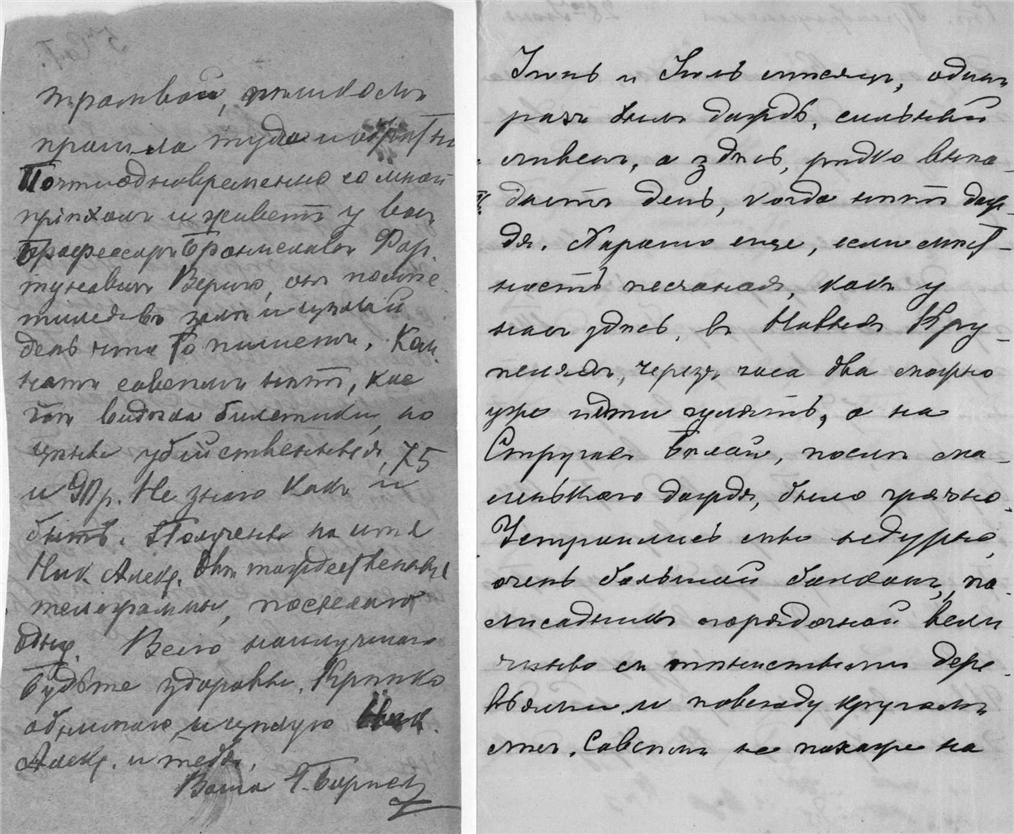 трамвай, пѣшкомъ
прошла туда и обратно
Почти одновременно со мной
пріѣхалъ и живетъ у васъ
Профессоръ Брониславъ Фор
тунатовичъ Вериго, онъ помѣс
тился въ залѣ и цѣлый
день что то пишетъ. Ком
натъ совсѣмъ нѣтъ, кое
гдѣ видѣла билетики, но
цѣны убійственныя, 75
и 90 р. Не знаю какъ и
быть. Получены на имя
Ник. Алекс. двѣ тождественныя
телеграммы, посылаю
одну. Всего наилучшаго
Будьте здоровы. Крѣпко
обнимаю и цѣлую Ник.
Алекс. и тебя.
Ваша
Іюнь и Іюль мѣсяцъ, одинъ
разъ былъ дождь, сильный
ливень, а здѣсь, рѣдко выпа
даетъ день, когда нѣтъ дож-
дя. Хорошо еще, если мѣст-
ность песчаная, какъ у
насъ здѣсь, въ Новыхъ Кру-
пеляхъ, черезъ часа два можно
уже идти гулять, а на
Стругахъ Бѣлой, послѣ ма-
ленькаго дождя, было грязно.
Устроились мы недурно,
очень большой балконъ, па-
лисадникъ порядочной вели
чины съ тѣнистыми дере
вьями и повсюду кругомъ
лѣс. Совсѣмъ не похоже на